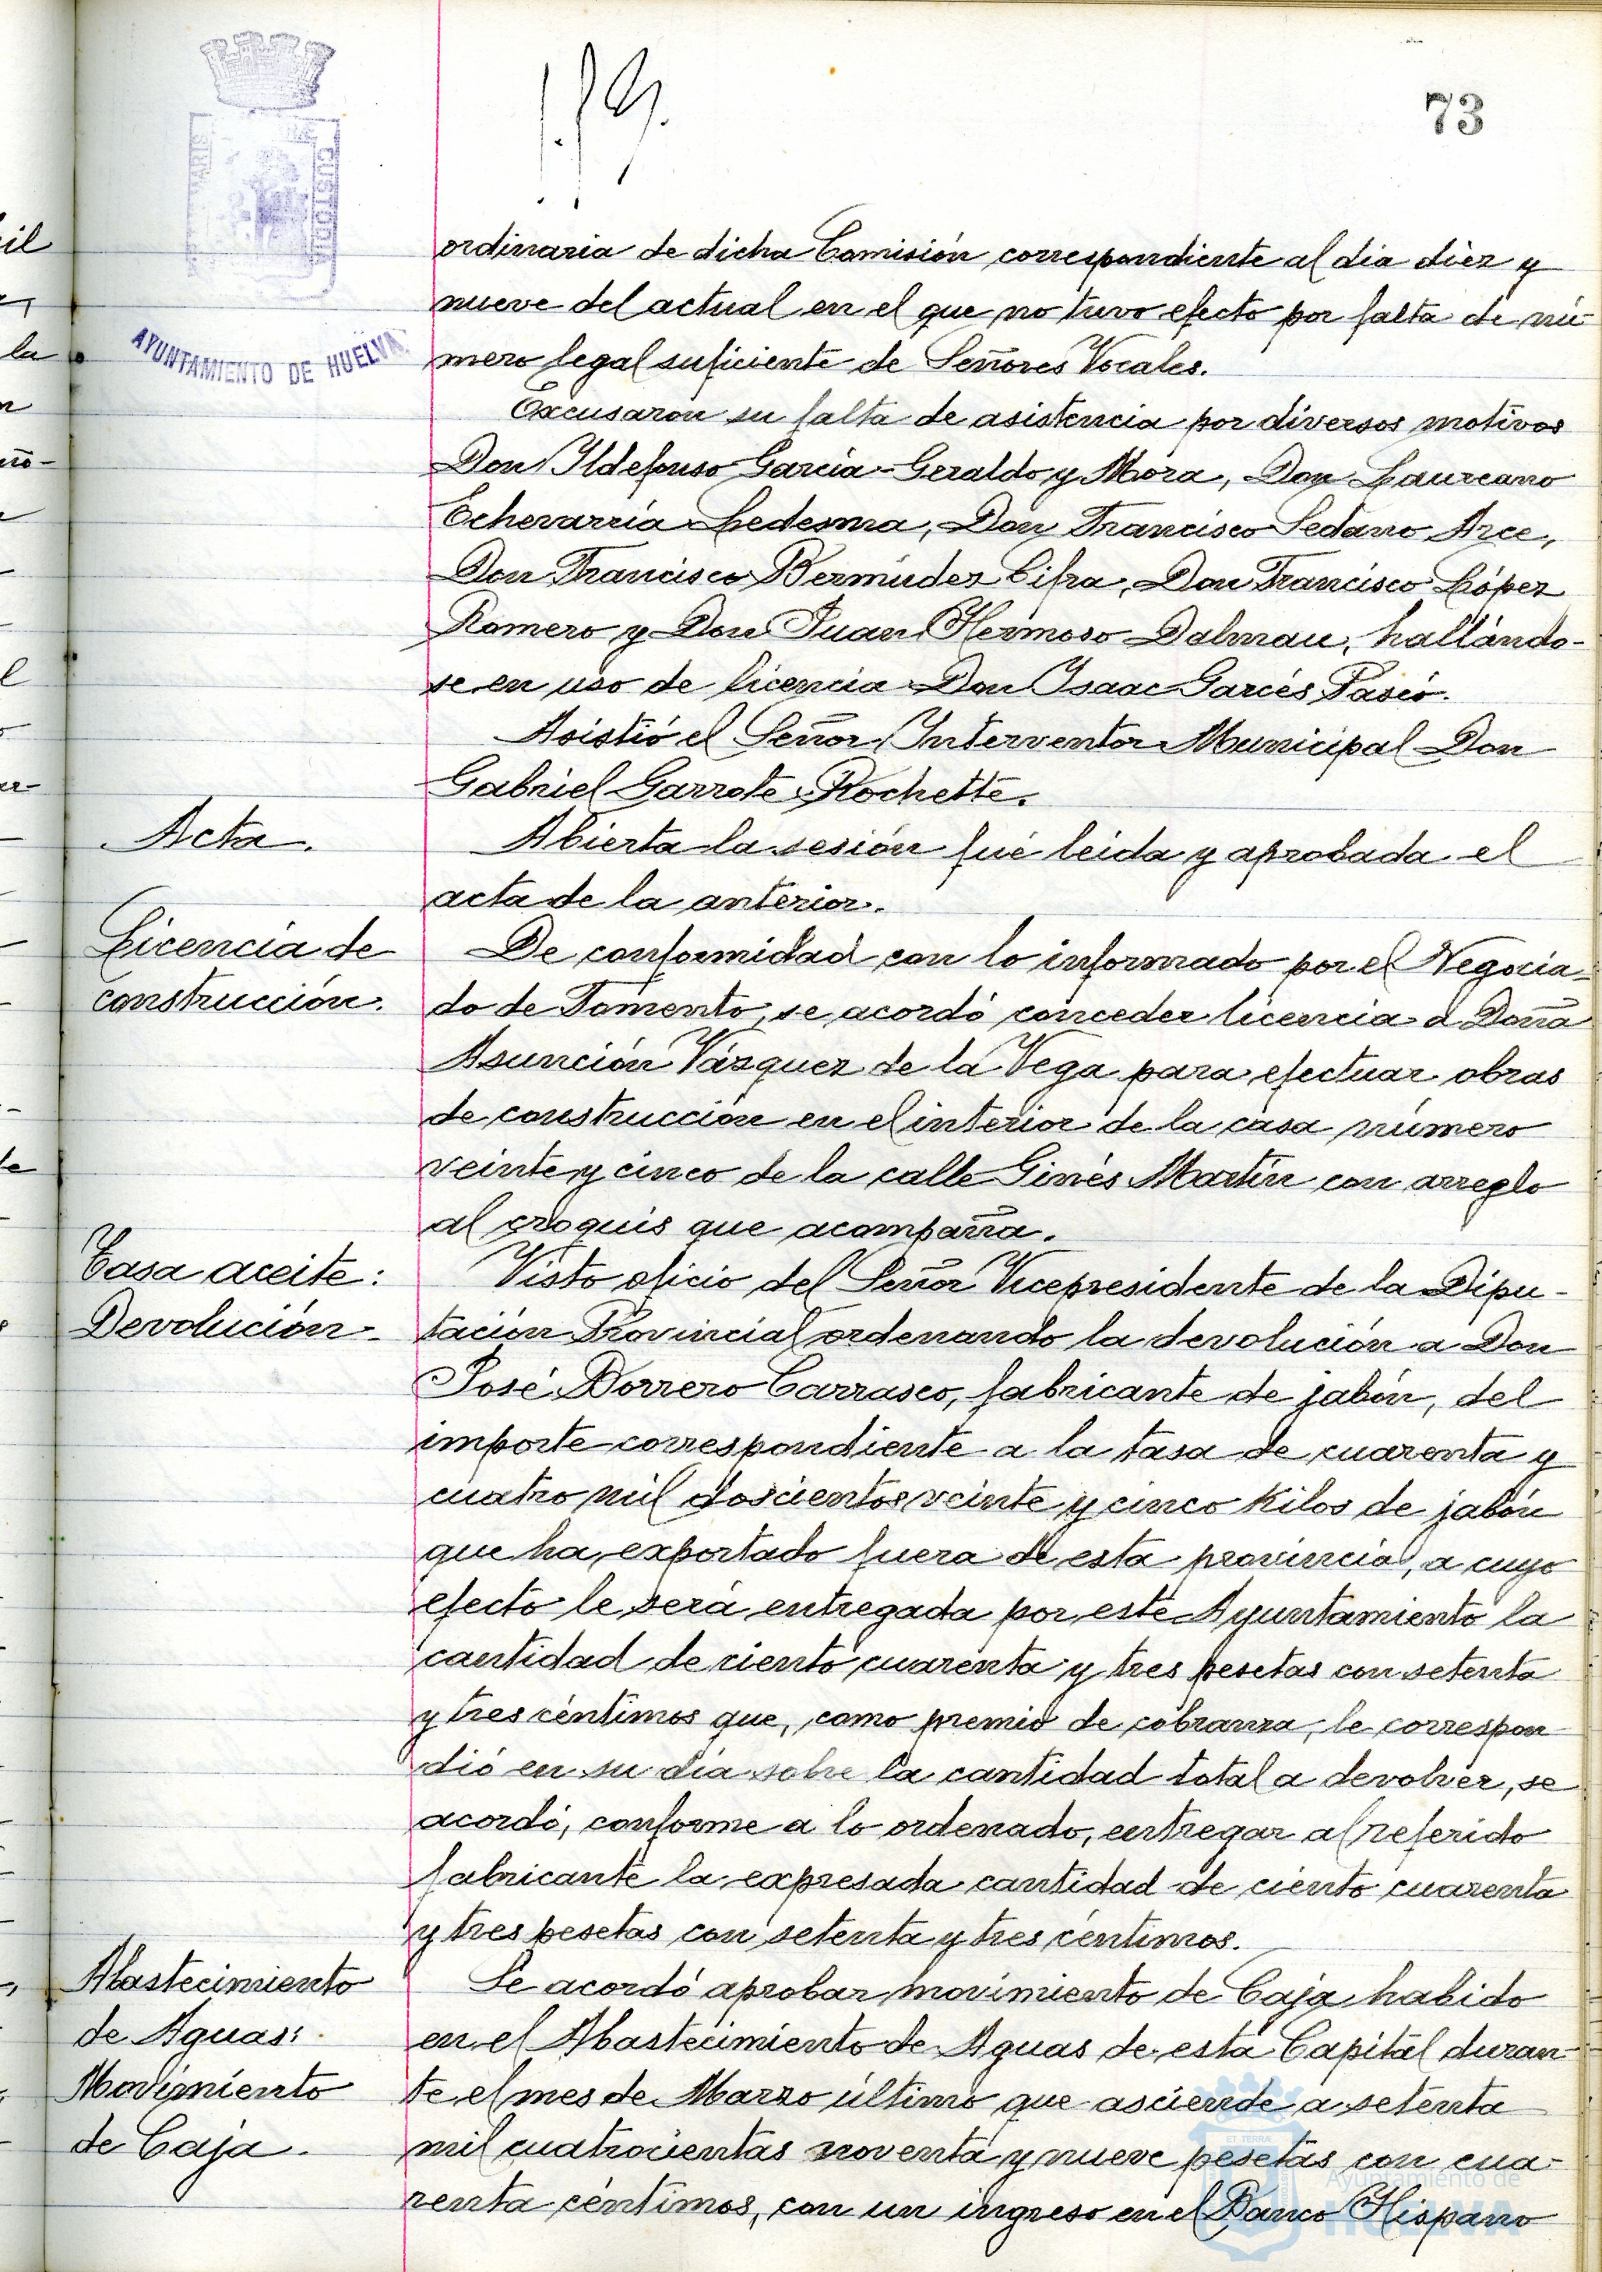 73
AYUNTAMIENTO DE HUELVA
ordinaria de dicha Comisión correspondiente al dia diez y
nueve del actual en el que no tuvo efecto por falta de nú-
mero legal suficiente de Señores Vocales.
Excusaron su falta de asistencia por diversos motivos
Don Ildefonso García-Geraldo y Mora, Don Laureano
Echevarría Ledesma, Don Francisco Sedano Arce,
Don Francisco Bermúdez Cifra, Don Francisco López
Romero y Don Juan Hermoso Dalmau, hallándo-
se en uso de licencia Don Isaac Garcés Pasió.
Asistió el Señor Interventor Municipal Don
Gabriel Garrote Rochette.
Acta.
Abierta la sesión fué leida y aprobada el
acta de la anterior.
Licencia de
construcción.
De conformidad con lo informado por el Negocia-
do de Fomento, se acordó conceder licencia a Doña
Asunción Vázquez de la Vega para efectuar obras
de construcción en el interior de la casa número
veinte y cinco de la calle Ginés Martín con arreglo
al croquis que acompaña.
Tasa aceite:
Devolución.
Visto oficio del Señor Vicepresidente de la Dipu-
tación Provincial ordenando la devolución a Don
José Borrero Carrasco, fabricante de jabón, del
importe correspondiente a la tasa de cuarenta y
cuatro mil doscientos veinte y cinco Kilos de jabón
que ha exportado fuera de esta provincia, a cuyo
efecto le será entregada por este Ayuntamiento la
cantidad de ciento cuarenta y tres pesetas con setenta
y tres céntimos que, como premio de cobranza, le correspon-
dió en su día sobre la cantidad total a devolver, se
acordó, conforme a lo ordenado, entregar al referido
fabricante la expresada cantidad de ciento cuarenta
y tres pesetas con setenta y tres céntimos.
Abastecimiento
de Aguas:
Movimiento
de Caja.
Se acordó aprobar movimiento de Caja habido
en el Abastecimiento de Aguas de esta Capital duran-
te el mes de Marzo último que asciende a setenta
mil cuatrocientas noventa y nueve pesetas con cua-
renta céntimos, con un ingreso en el Banco Hispano
Ayuntamiento de
HUELVA